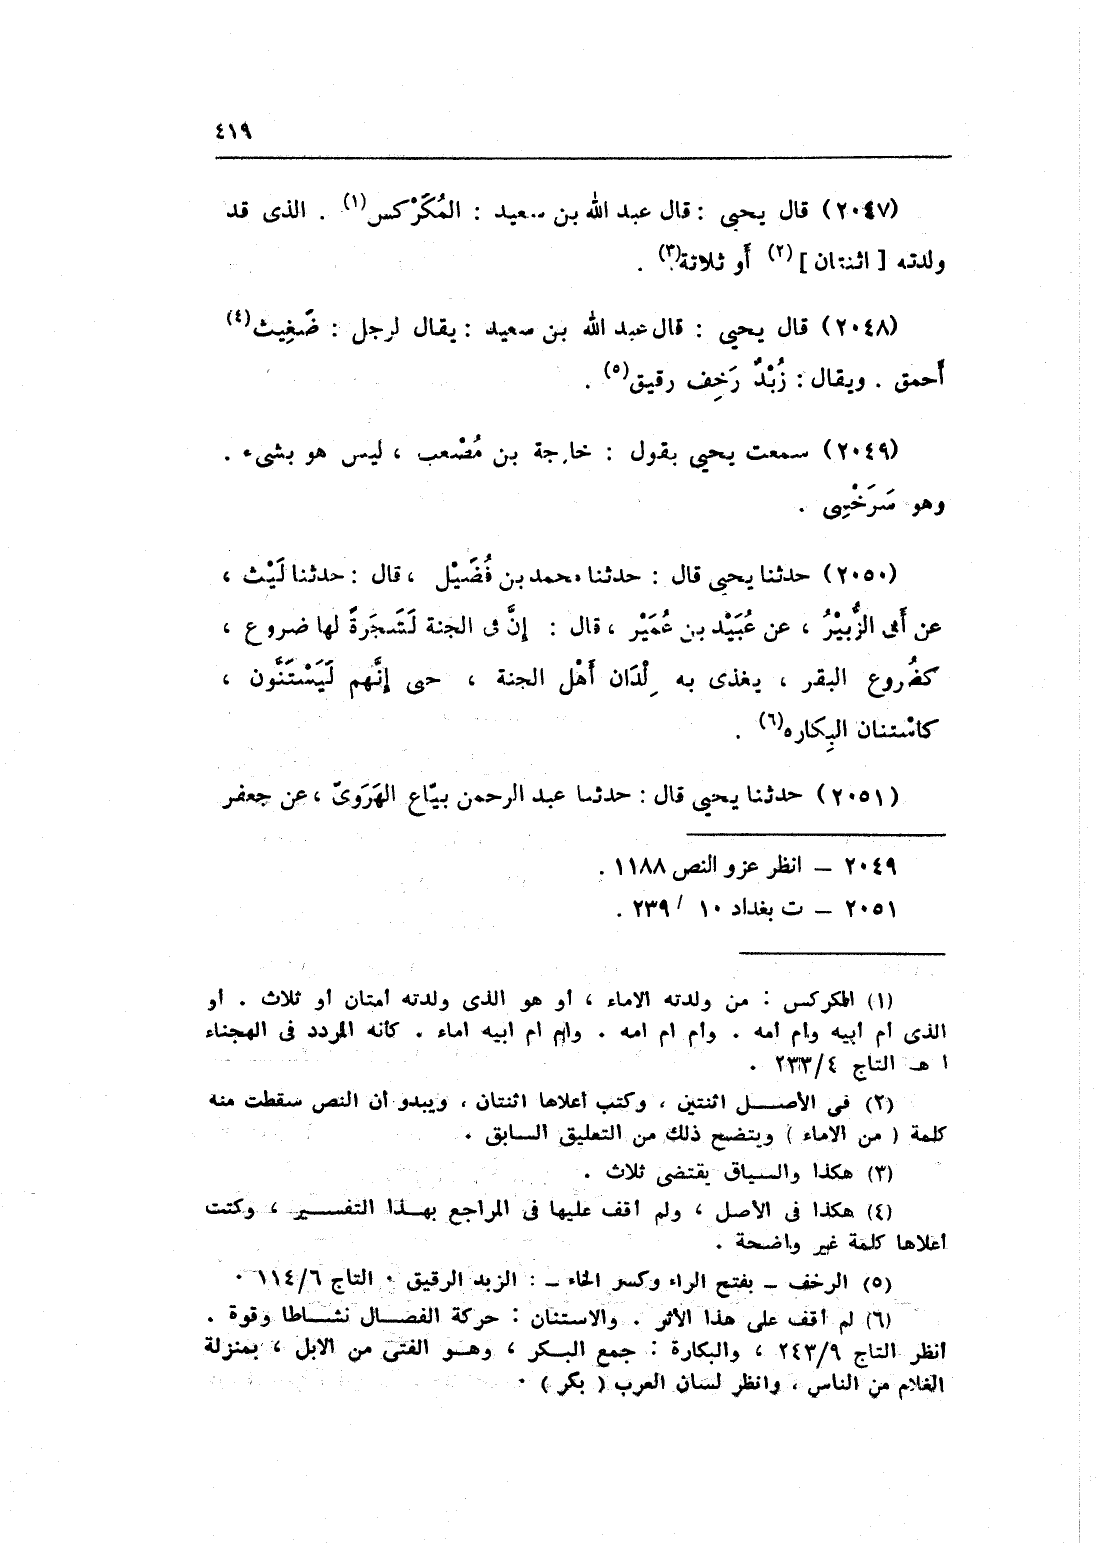 ٤١٩
(٢٠٤٧) قال يحيى : قال عبد الله بن سعيد : المُكَرْكس(١) . الذى قد
ولدته [ اثنتان ] (٢) أَو ثلاثة(٣) .
(٢٠٤٨) قال يحيى : قال عبد الله بن سعيد : يقال لرجل : ضَغِيث(٤)
أَحمق . ويقال : زُبْدٌ رَخِف رقيق(٥) .
(٢٠٤٩) سمعت يحيى يقول : خارجة بن مُصْعب ، ليس هو بشىء .
وهو سَرَخْسِى .
(٢٠٥٠) حدثنا يحيى قال : حدثنا محمد بن فُضَيْل ، قال : حدثنا لَيْث ،
عن أَبى الزُّبيْرُ ، عن عُبَيْد بن عُمَيْر ، قال : إِنَّ فى الجنة لَشَجَرةً لها ضروع ،
كضُروع البقر ، يغذى به وِلْدَان أَهْل الجنة ، حتى إِنَّهم لَيَسْتَنَّون ،
كاسْتنان البِكاره(٦) .
(٢٠٥١) حدثنا يحيى قال : حدثنا عبد الرحمن بيّاع الهَرَوىّ ، عن جعفر
٢٠٤٩ – انظر عزو النص ١١٨٨ .
٢٠٥١ – ت بغداد ١٠ / ٢٣٩ .
(١) المكركس : من ولدته الاماء ، أو هو الذى ولدته أمتان أو ثلاث . أو
الذى أم أبيه وأم أمه . وأم ام امه . وأم ام ابيه اماء . كأنه المردد فى الهجناء
ا هـ التاج ٢٣٣/٤ .
(٢) فى الأصل اثنتين ، وكتب أعلاها اثنتان ، ويبدو أن النص سقطت منه
كلمة ( من الاماء ) ويتضح ذلك من التعليق السابق .
(٣) هكذا والسياق يقتضى ثلاث .
(٤) هكذا فى الأصل ، ولم أقف عليها فى المراجع بهذا التفسير ، وكتت
أعلاها كلمة غير واضحة .
(٥) الرخف – بفتح الراء وكسر الخاء – : الزبد الرقيق . التاج ١١٤/٦ .
(٦) لم أقف على هذا الأثر . والاستنان : حركة الفصال نشاطا وقوة .
أنظر التاج ٢٤٣/٩ ، والبكارة : جمع البكر ، وهو الفتى من الابل ، بمنزلة
الغلام من الناس ، وانظر لسان العرب ( بكر ) .